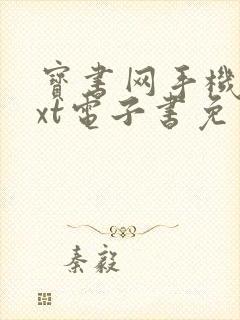 寶書网手機
xt電子書免
秦毅